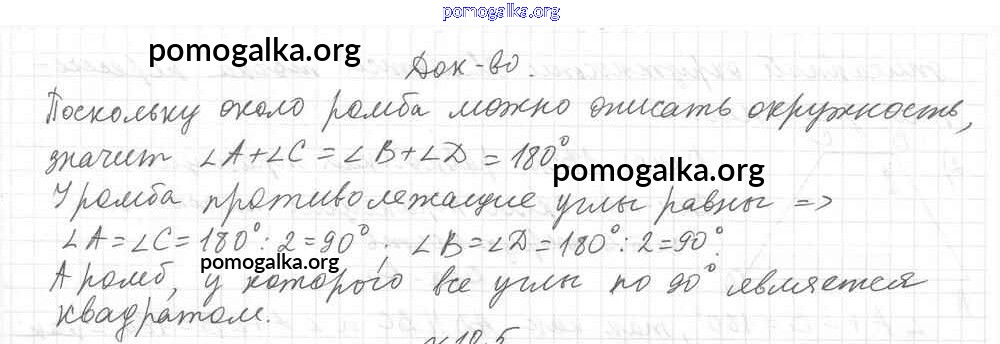 pomogalka.org
pomogalka.org
Док-во.
Поскольку около ромба можно описать окружность,
значит ∠A+∠C=∠B+∠D=180°
pomogalka.org
У ромба противолежащие углы равны =>
∠A=∠C=180°:2=90°; ∠B=∠D=180°:2=90°.
pomogalka.org
А ромб, у которого все углы по 90° является
квадратом.